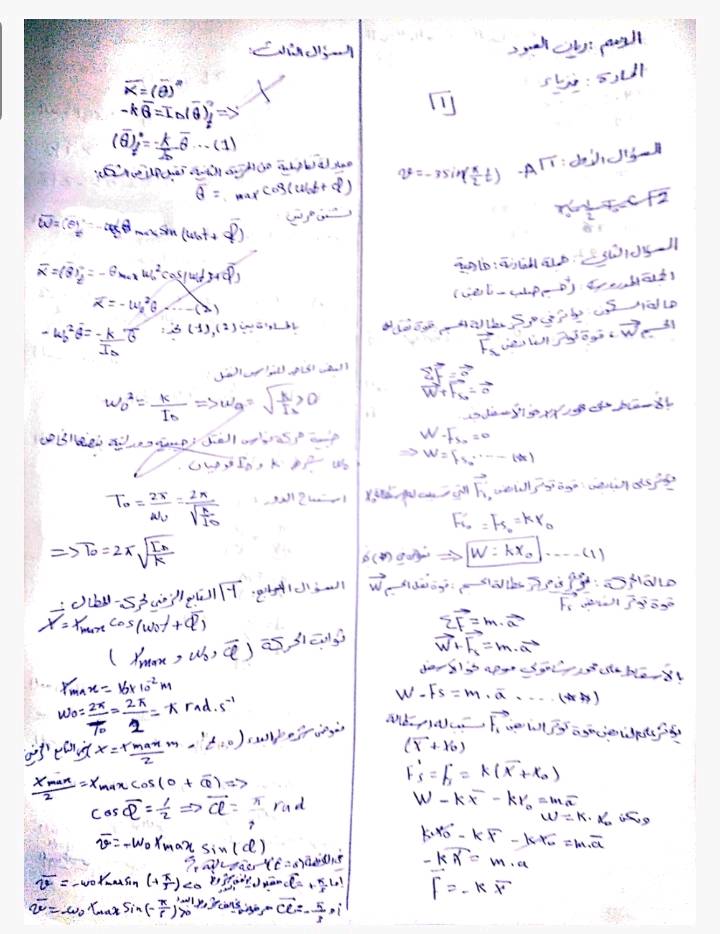 الاسم: ريان العبود
المادة: فيزياء
[1]
السؤال الأول: 1- A v = -3 sin(π/2 t)
2- C
السؤال الثاني: جملة المقارنة: خارجية
الجملة المدروسة: (جسم صلب - نابض)
حالة السكون: يؤثر في مركز عطالة الجسم قوة ثقل
الجسم W⃗، قوة توتر النابض F⃗s₀
ΣF⃗ = 0⃗
W⃗ + F⃗s₀ = 0⃗
بالإسقاط على محور نحو الأسفل نجد
W - Fs₀ = 0
⇒ W = Fs₀ ..... (*)
يؤثر على النابض: قوة توتر النابض F⃗'s₀ التي تسبب له استطالة x₀
F's₀ = Fs₀ = kx₀
نعوض في (*) ⇒ W = kx₀ ..... (1)
حالة الحركة: يؤثر في مركز عطالة الجسم: قوة ثقل الجسم W⃗
قوة توتر النابض F⃗s
ΣF⃗ = m.a⃗
W⃗ + F⃗s = m.a⃗
بالإسقاط على محور شاقولي موجه نحو الأسفل
W - Fs = m.a̅ .... (**)
يؤثر على النابض قوة توتر النابض F⃗'s تسبب له استطالة
(x̅ + x₀)
F's = Fs = k(x̅ + x₀)
W - kx̅ - kx₀ = ma̅
ولكن W = k.x₀
k.x₀ - kx̅ - kx₀ = m.a̅
-kx̅ = m.a
F̅ = -kx̅
السؤال الثالث:
α̅ = (θ̅)''
-kθ̅ = I_Δ(θ̅)''t ⇒
(θ̅)''t = -k/I_Δ θ̅ ... (1)
معادلة تفاضلية من المرتبة الثانية تقبل حلاً من الشكل:
θ̅ = max cos(ω₀t + φ̅)
نشتق مرتين
ω̅ = (θ̅)'t = -ω₀θmax sin(ω₀t + φ̅)
α̅ = (θ̅)''t = -θmax ω₀² cos(ω₀t + φ̅)
α̅ = -ω₀²θ̅ ..... (2)
بالمساواة بين (1), (2) نجد: -ω₀²θ̅ = -k/I_Δ θ̅
النبض الخاص للنواس الفتل
ω₀² = k/I_Δ ⇒ ω₀ = √(k/I_Δ) > 0
طبيعة حركة نواس الفتل: جيبية دورانية نبضها الخاص
استنتاج الدور: T₀ = 2π/ω₀ = 2π/√(k/I_Δ)
⇒ T₀ = 2π√(I_Δ/k)
السؤال الرابع: 1- التابع الزمني لحركة المطال:
x̅ = xmax cos(ω₀t + φ̅)
ثوابت الحركة (xmax, ω₀, φ̅)
xmax = 16×10⁻² m
ω₀ = 2π/T₀ = 2π/2 = π rad.s⁻¹
نعوض شروط البدء (t=0, x = xmax/2 m) في التابع الزمني
xmax/2 = xmax cos(0 + φ̅) ⇒
cosφ̅ = 1/2 ⇒ φ̅ = π/3 rad
v̅ = -ω₀ xmax sin(φ)
v̅ = -ω₀ xmax sin(+π/3) < 0
v̅ = -ω₀ xmax sin(-π/3) > 0